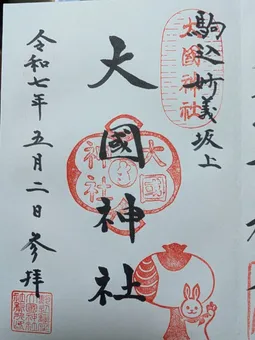 駒込妙義坂上
大國神社
大國神社
大國
神社
令和七年五月二日参拝